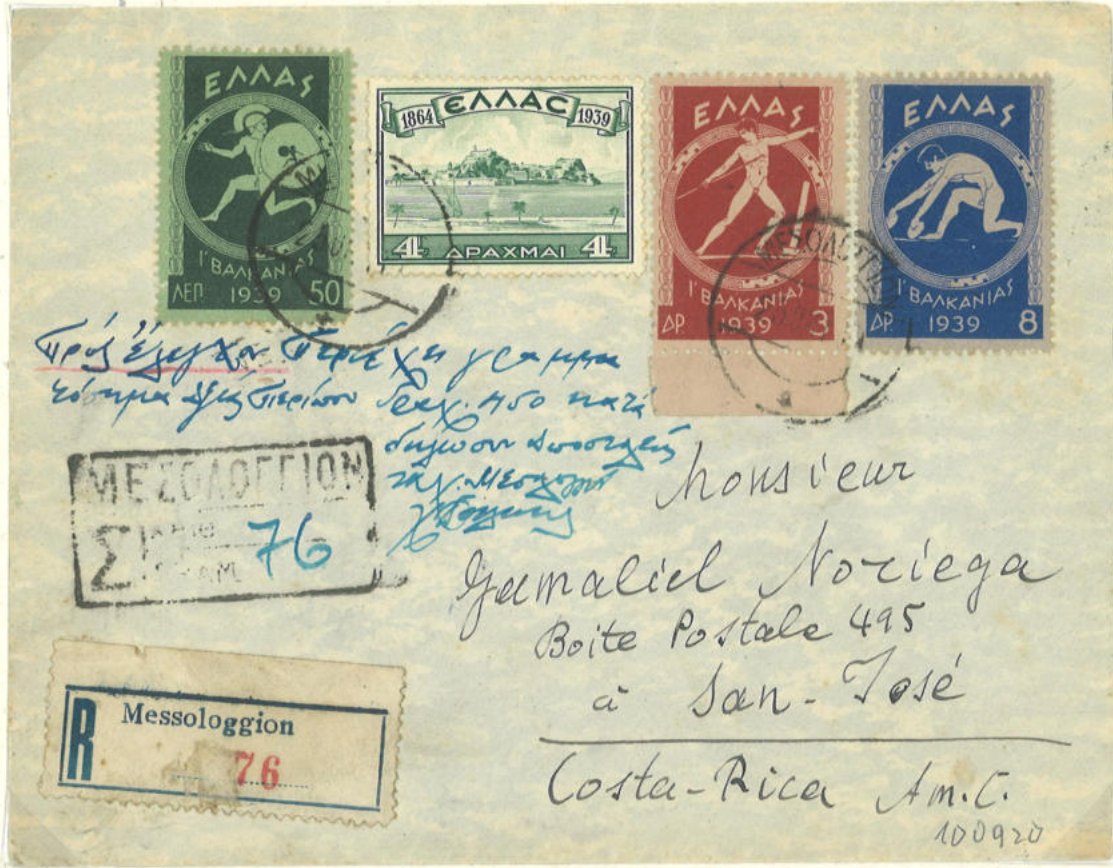 ΕΛΛΑΣ
Ι' ΒΑΛΚΑΝΙΑΣ
ΛΕΠ. 1939 50
1864 ΕΛΛΑC 1939
4 ΔΡΑΧΜΑΙ 4
ΕΛΛΑΣ
Ι' ΒΑΛΚΑΝΙΑΣ
ΔΡ. 1939 3
ΕΛΛΑΣ
Ι' ΒΑΛΚΑΝΙΑΣ
ΔΡ. 1939 8
Πρός έλεγχον Περιέχει γραμμα
τόσημα αξίας περίπου δραχ. 450 κατά
δήλωσιν
ΜΕΖΟΛΟΓΓΙΟΝ
Σ 76
R Messologgion
76
Monsieur
Gamaliel Noriega
Boite Postale 495
à San-José
Costa-Rica Am.C.
100920